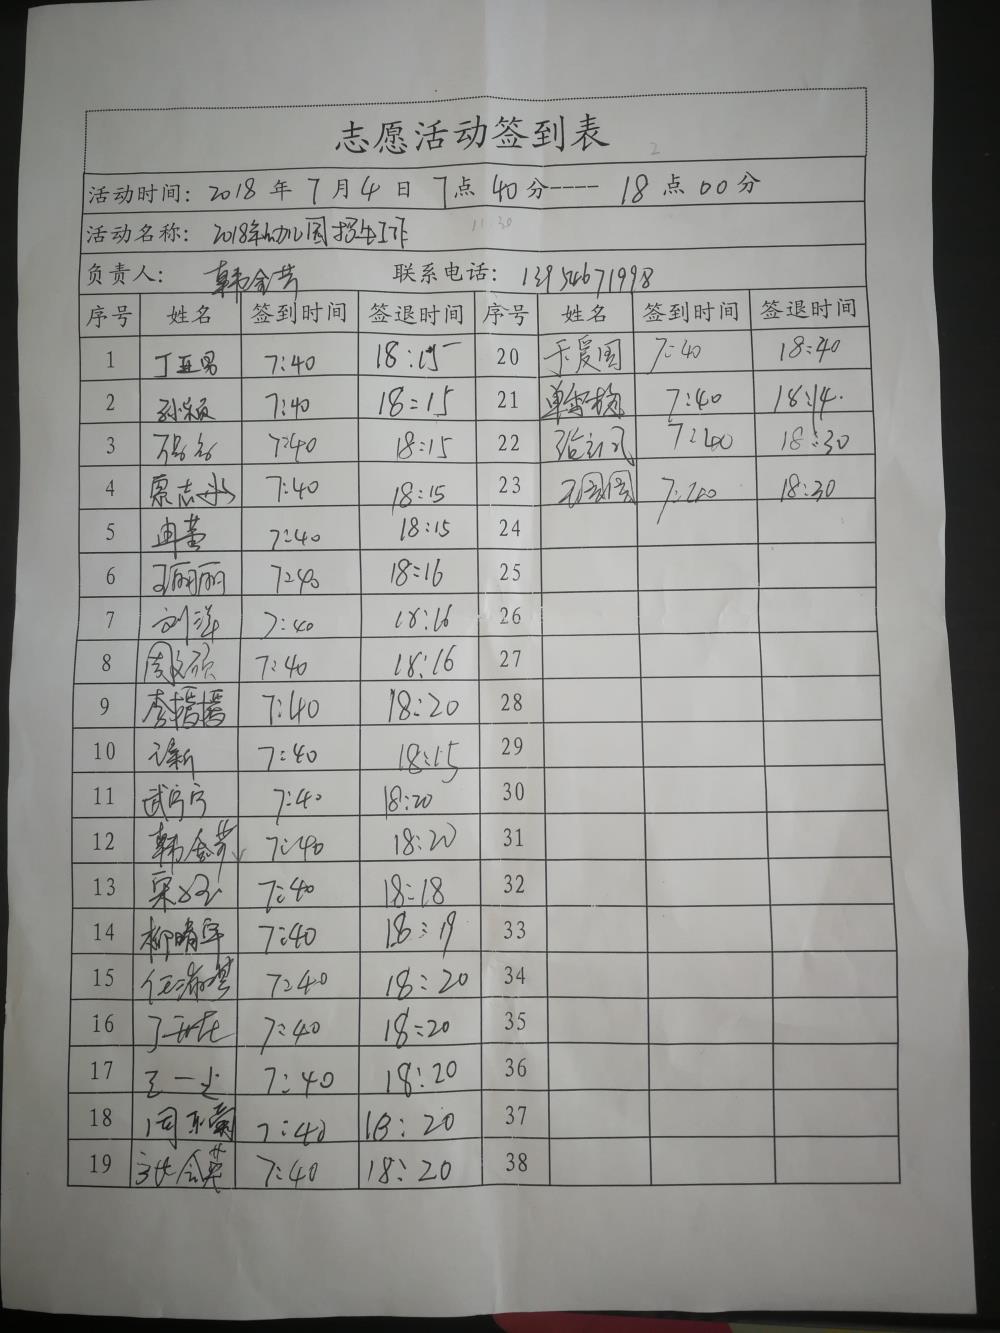 志愿活动签到表
活动时间：2018年7月4日7点40分----18点00分
活动名称：2018年幼儿园招生工作
负责人：韩金芳 联系电话：13954671998
序号 姓名 签到时间 签退时间 序号 姓名 签到时间 签退时间
1 丁亚男 7:40 18:15 20 于爱国 7:40 18:40
2 孙颖 7:40 18:15 21 单雪梅 7:40 18:14
3 7:40 18:15 22 7:40 18:30
4 寇志永 7:40 18:15 23 7:40 18:30
5 冉蕾 7:40 18:15 24
6 王丽丽 7:40 18:16 25
7 刘洋 7:40 18:16 26
8 周文硕 7:40 18:16 27
9 李搢搢 7:40 18:20 28
10 7:40 18:15 29
11 武宁宁 7:40 18:20 30
12 韩金芳 7:40 18:20 31
13 7:40 18:18 32
14 柳晴 7:40 18:19 33
15 7:40 18:20 34
16 7:40 18:20 35
17 7:40 18:20 36
18 7:40 18:20 37
19 7:40 18:20 38